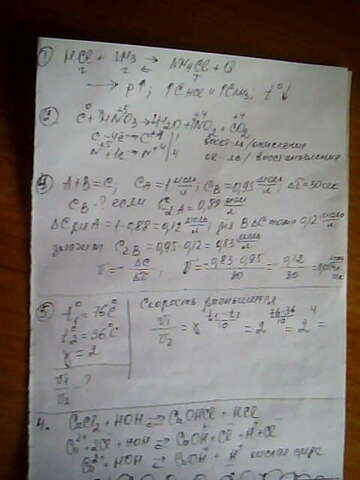 ① HCl + NH3 ⇄ NH4Cl + Q
г г т
→ p↑; ↑CHCl и ↑CNH3; t°↓
② C⁰ + 4HNO3⁺⁵ → 2H2O + 4NO2⁺⁴ + CO2⁺⁴
C⁰ - 4e → C⁺⁴ | 1
N⁺⁵ + 1e → N⁺⁴ | 4
восс-ль/окисление
ок-ль/восстановление
A + B = C; CA = 1 моль/л; CB = 0,95 моль/л; Δτ = 30 сек
CB - ? если C2A = 0,88 моль/л
ΔC для A = 1 - 0,88 = 0,12 моль/л; для B ΔC тоже 0,12 моль/л
значит C2B = 0,95 - 0,12 = 0,83 моль/л
v = - ΔC/Δτ; v = - 0,83 - 0,95/30 = 0,12/30 =
⑤ t1° = 76°C
t2° = 36°C
γ = 2
v1/v2 - ?
Скорость уменьшится
v1/v2 = γ t1-t2/10 = 2 76-36/10 = 2⁴ =
4. CaCl2 + HOH ⇄ CaOHCl + HCl
Ca²⁺ + 2Cl⁻ + HOH ⇄ CaOH⁺ + Cl⁻ + H⁺ + Cl⁻
Ca²⁺ + HOH ⇄ CaOH⁺ + H⁺ кислая среда